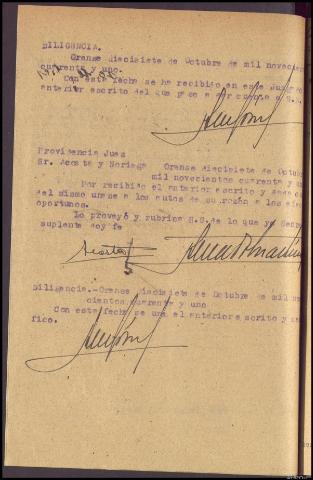 DILIGENCIA.
Orense diecisiete de Octubre de mil novecien
cuarenta y uno.
Con esta fecha se ha recibido en este Juzgado
anterior escrito del que paso a dar cuenta a S.S.
Providencia Juez
Sr. Acosta y Noriega Orense diecisiete de Octub
mil novecientos cuarenta y u
Por recibido el anterior escrito y
del mismo unase a los autos de su razón a los
oportunos.
Lo proveyó y rubrica S.S. de lo que yo Secre
suplente doy fe
Diligencia.-Orense diecisiete de Octubre de mil no
cientos cuarenta y uno
Con esta fecha se une el anterior escrito y
fico.